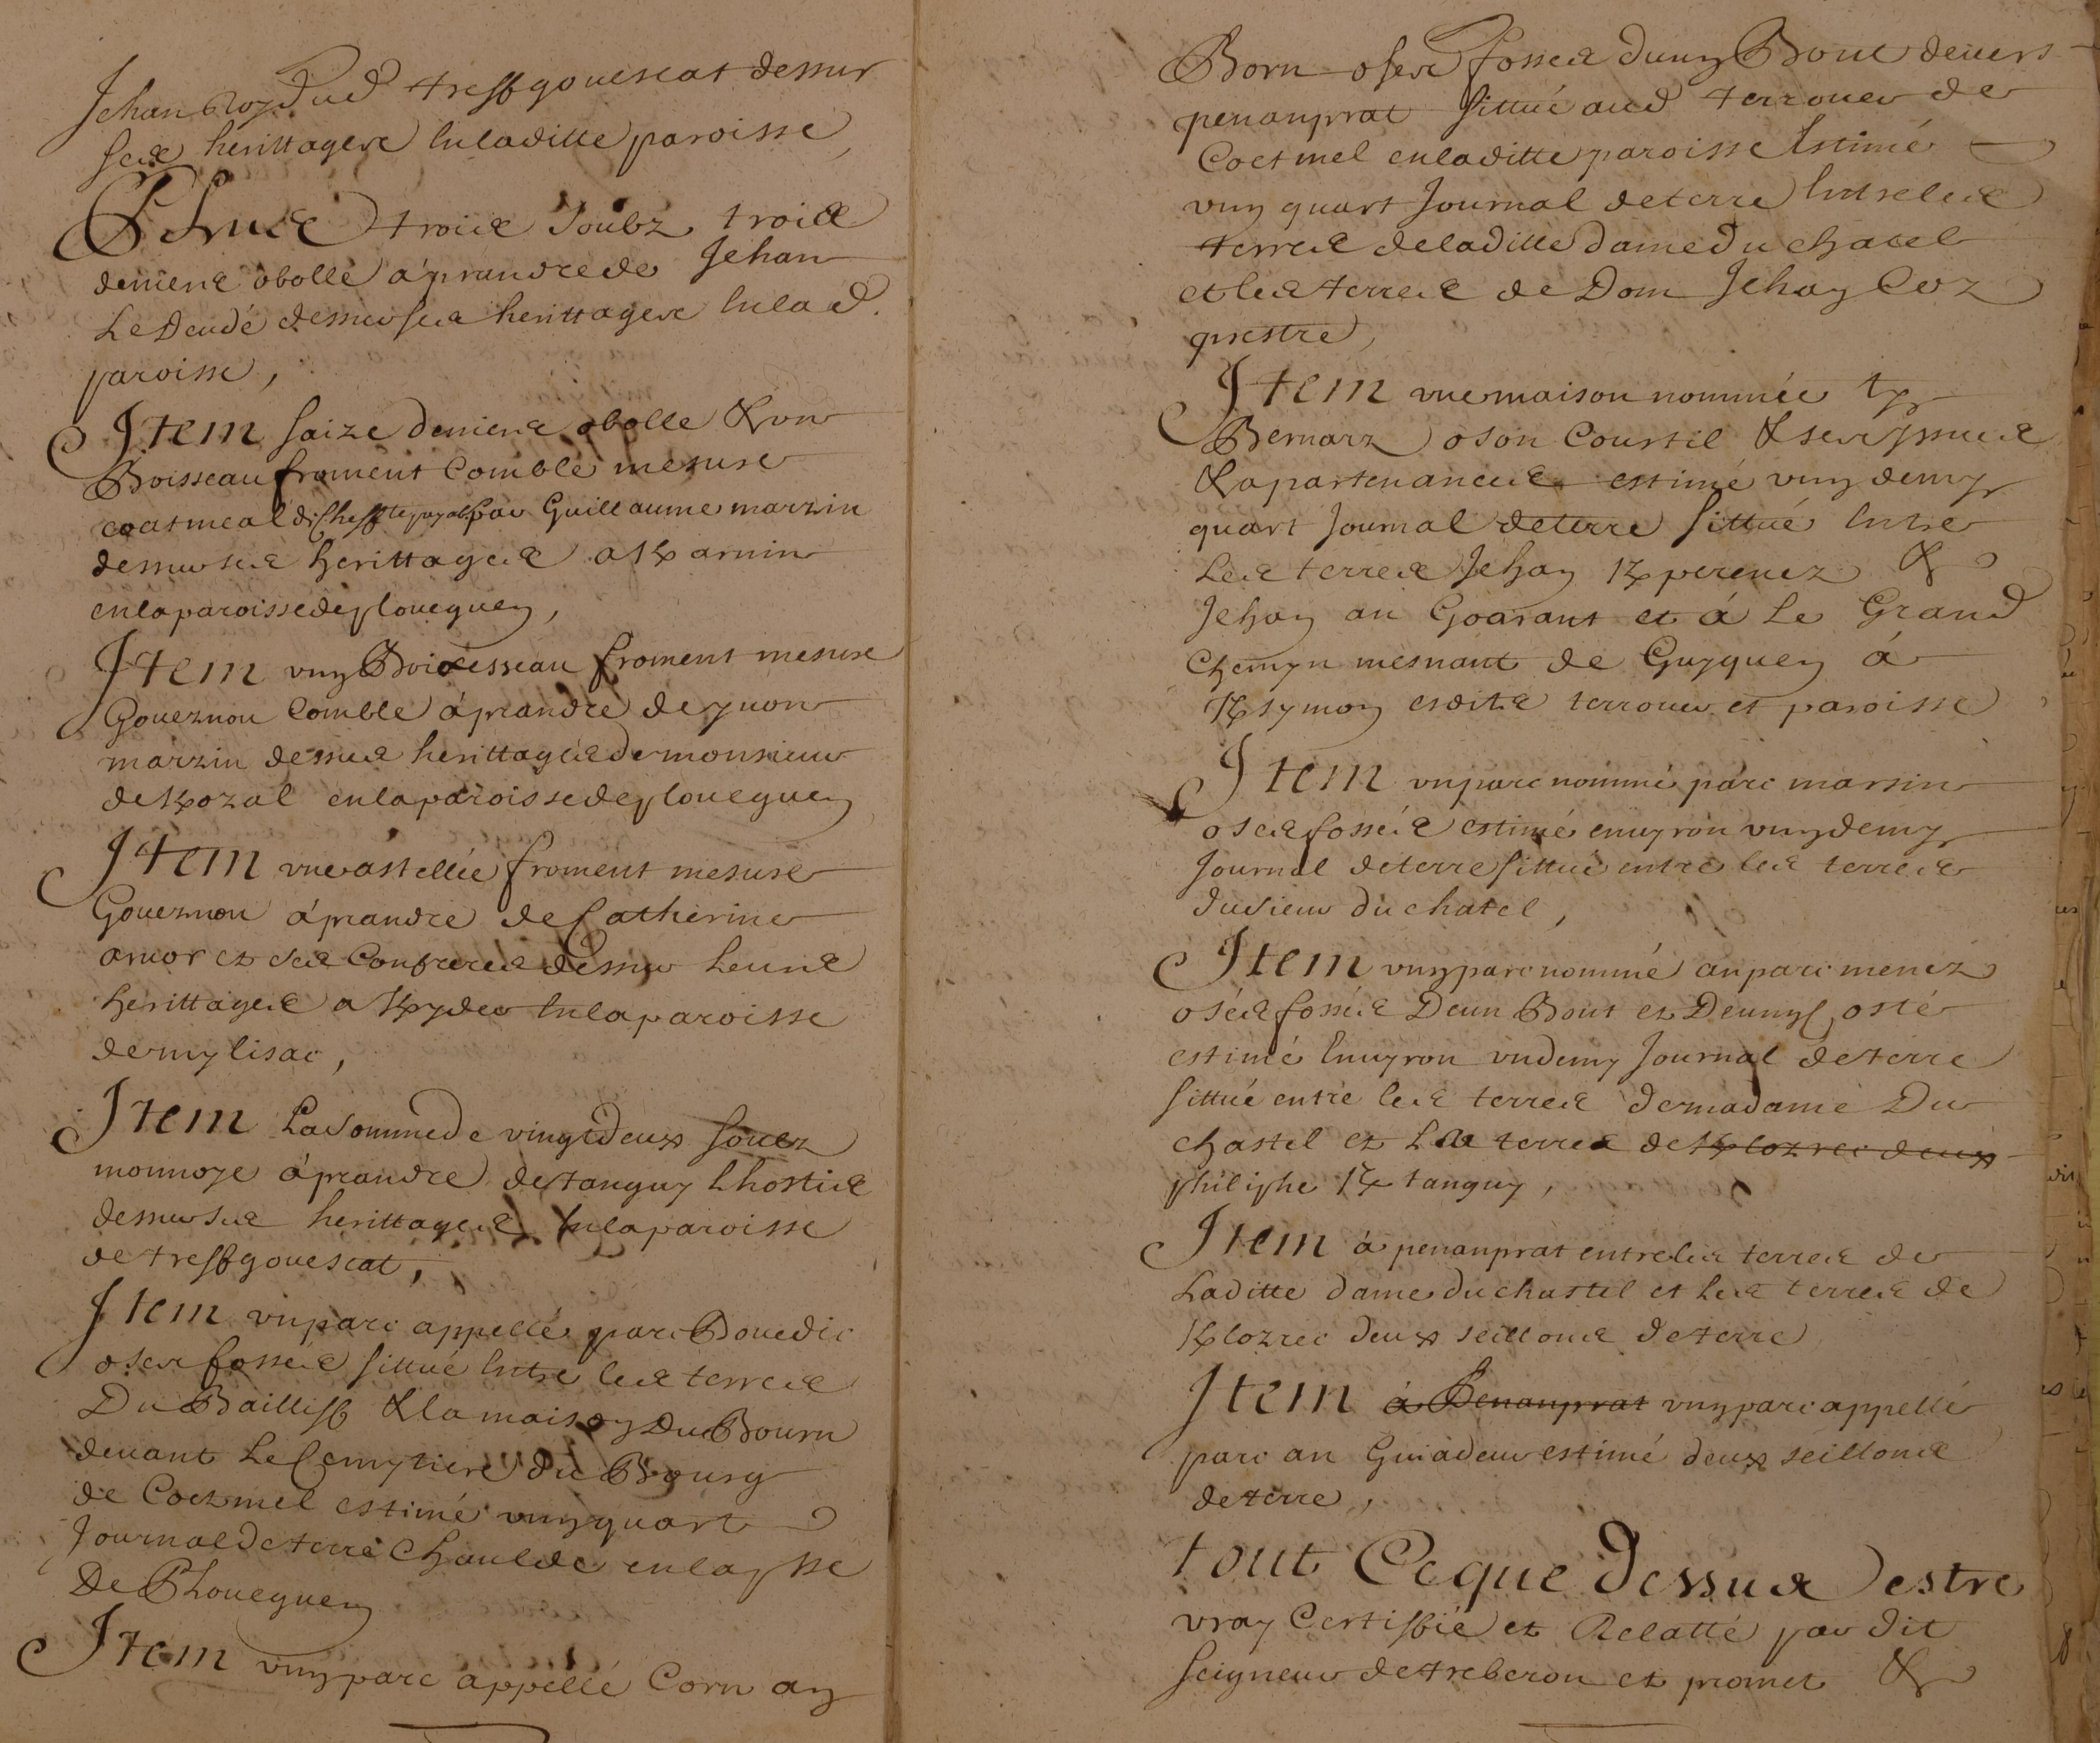 Jehan Roy dud tressgouescat dessur
ses herittages en laditte paroisse,
Et sur troies soubz troies
deniers obolle à prandre de Jehan
Le Deudé dessur ses herittages en lad.
paroisse,
Item saize deniers obolle & un
Boisseau froment comble mesure
coatmeal par Guillaume marzin
dessur ses herittages a K arnin
en la paroisse de ploueguen,
Item ung Boiesseau froment mesure
Goueznou comble à prandre de yvon
marzin dessus herittages de monsieur
de Kozal en la paroisse de ploueguen
Item une astellée froment mesure
Goueznou à prandre de Catherine
et ses Confreres dessur leurs
herittages a Kyder en la paroisse
de mylisac,
Item La somme de vingt deux soulz
monnoye à prandre de tanguy Lhostis
dessur ses herittages en la paroisse
de tressgouescat,
Item un parc appellé parc Bouedic
o ses fossés sittué entre les terres
Du Bailliff & la maison Du Bourn
devant Le Cemytiere du Bourg
de Coetmel estimé ung quart
Journal de terre chaulde en la psse
De Ploueguen
Item ung parc appellé Corn an
Born o ses fosses d'ung Bout devers
penanprat sittué aud terrouer de
Coetmel en laditte paroisse Estimé
ung quart Journal de terre entre les
terres de laditte dame du chatel
et les terres de Dom Jehan Coz
prestre,
Item une maison nommée ty
Bernarz o son Courtil & ses yssues
& apartenances estimé ung demy
quart Journal de terre sittué entre
Les terres Jehan K perenez &
Jehan an Goarant et à Le Grand
Chemyn mesnant de Guyguen à
K symon esdits terrouer et paroisse
Item un parc nommé parc marsin
o ses fossés estimé environ ung demy
Journal de terre sittué entre les terres
du sieur du chatel,
Item ung parc nommé an parc menez
o ses fossés D'eun Bout et D'eung costé
estimé Environ un demy Journal de terre
sittué entre les terres de madame Du
chastel et Les terres de K lozrec deux
philiphe K tanguy,
Item à penanprat entre les terres de
Laditte dame du chastel et les terres de
K lozrec deux seillons de terre
Item à Penanprat ung parc appellé
parc an Guiadeur estimé deux seillons
de terre,
tout Ce que Dessus estre
vray Certiffié et Relatté par dit
Seigneur de treberon et promet &